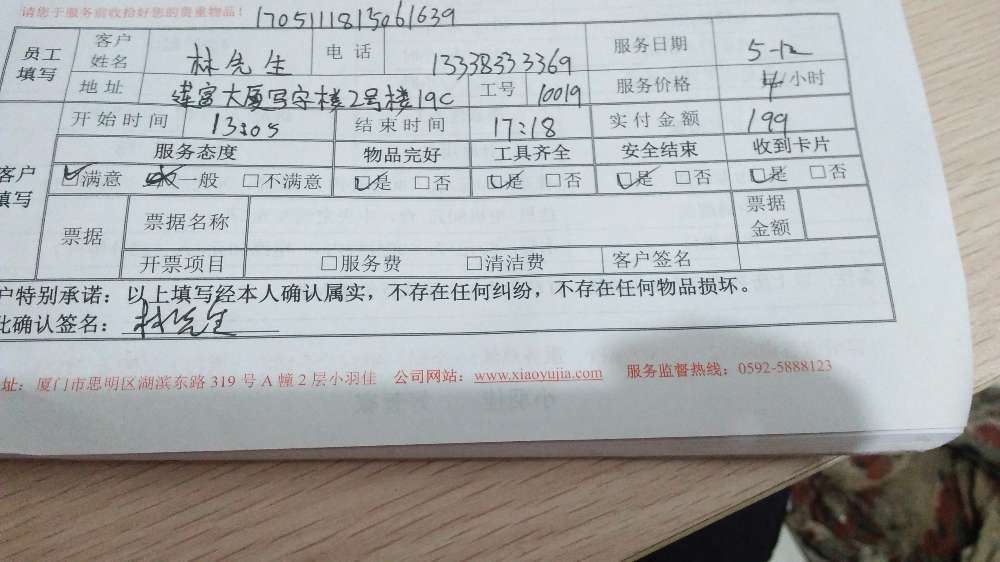 请您于服务前收拾好您的贵重物品! 1705111815061639
员工填写 客户姓名 林先生 电话 13338333369 服务日期 5-12
地址 建富大厦写字楼2号楼19C 工号 10019 服务价格 4/小时
开始时间 13:05 结束时间 17:18 实付金额 199
客户填写 服务态度 物品完好 工具齐全 安全结束 收到卡片
☑满意 一般 □不满意 ☑是 □否 ☑是 □否 ☑是 □否 ☑是 □否
票据 票据名称 票据金额
开票项目 □服务费 □清洁费 客户签名
户特别承诺：以上填写经本人确认属实，不存在任何纠纷，不存在任何物品损坏。
此确认签名： 林先生
址：厦门市思明区湖滨东路 319 号 A 幢 2 层小羽佳 公司网站：www.xiaoyujia.com 服务监督热线：0592-5888123